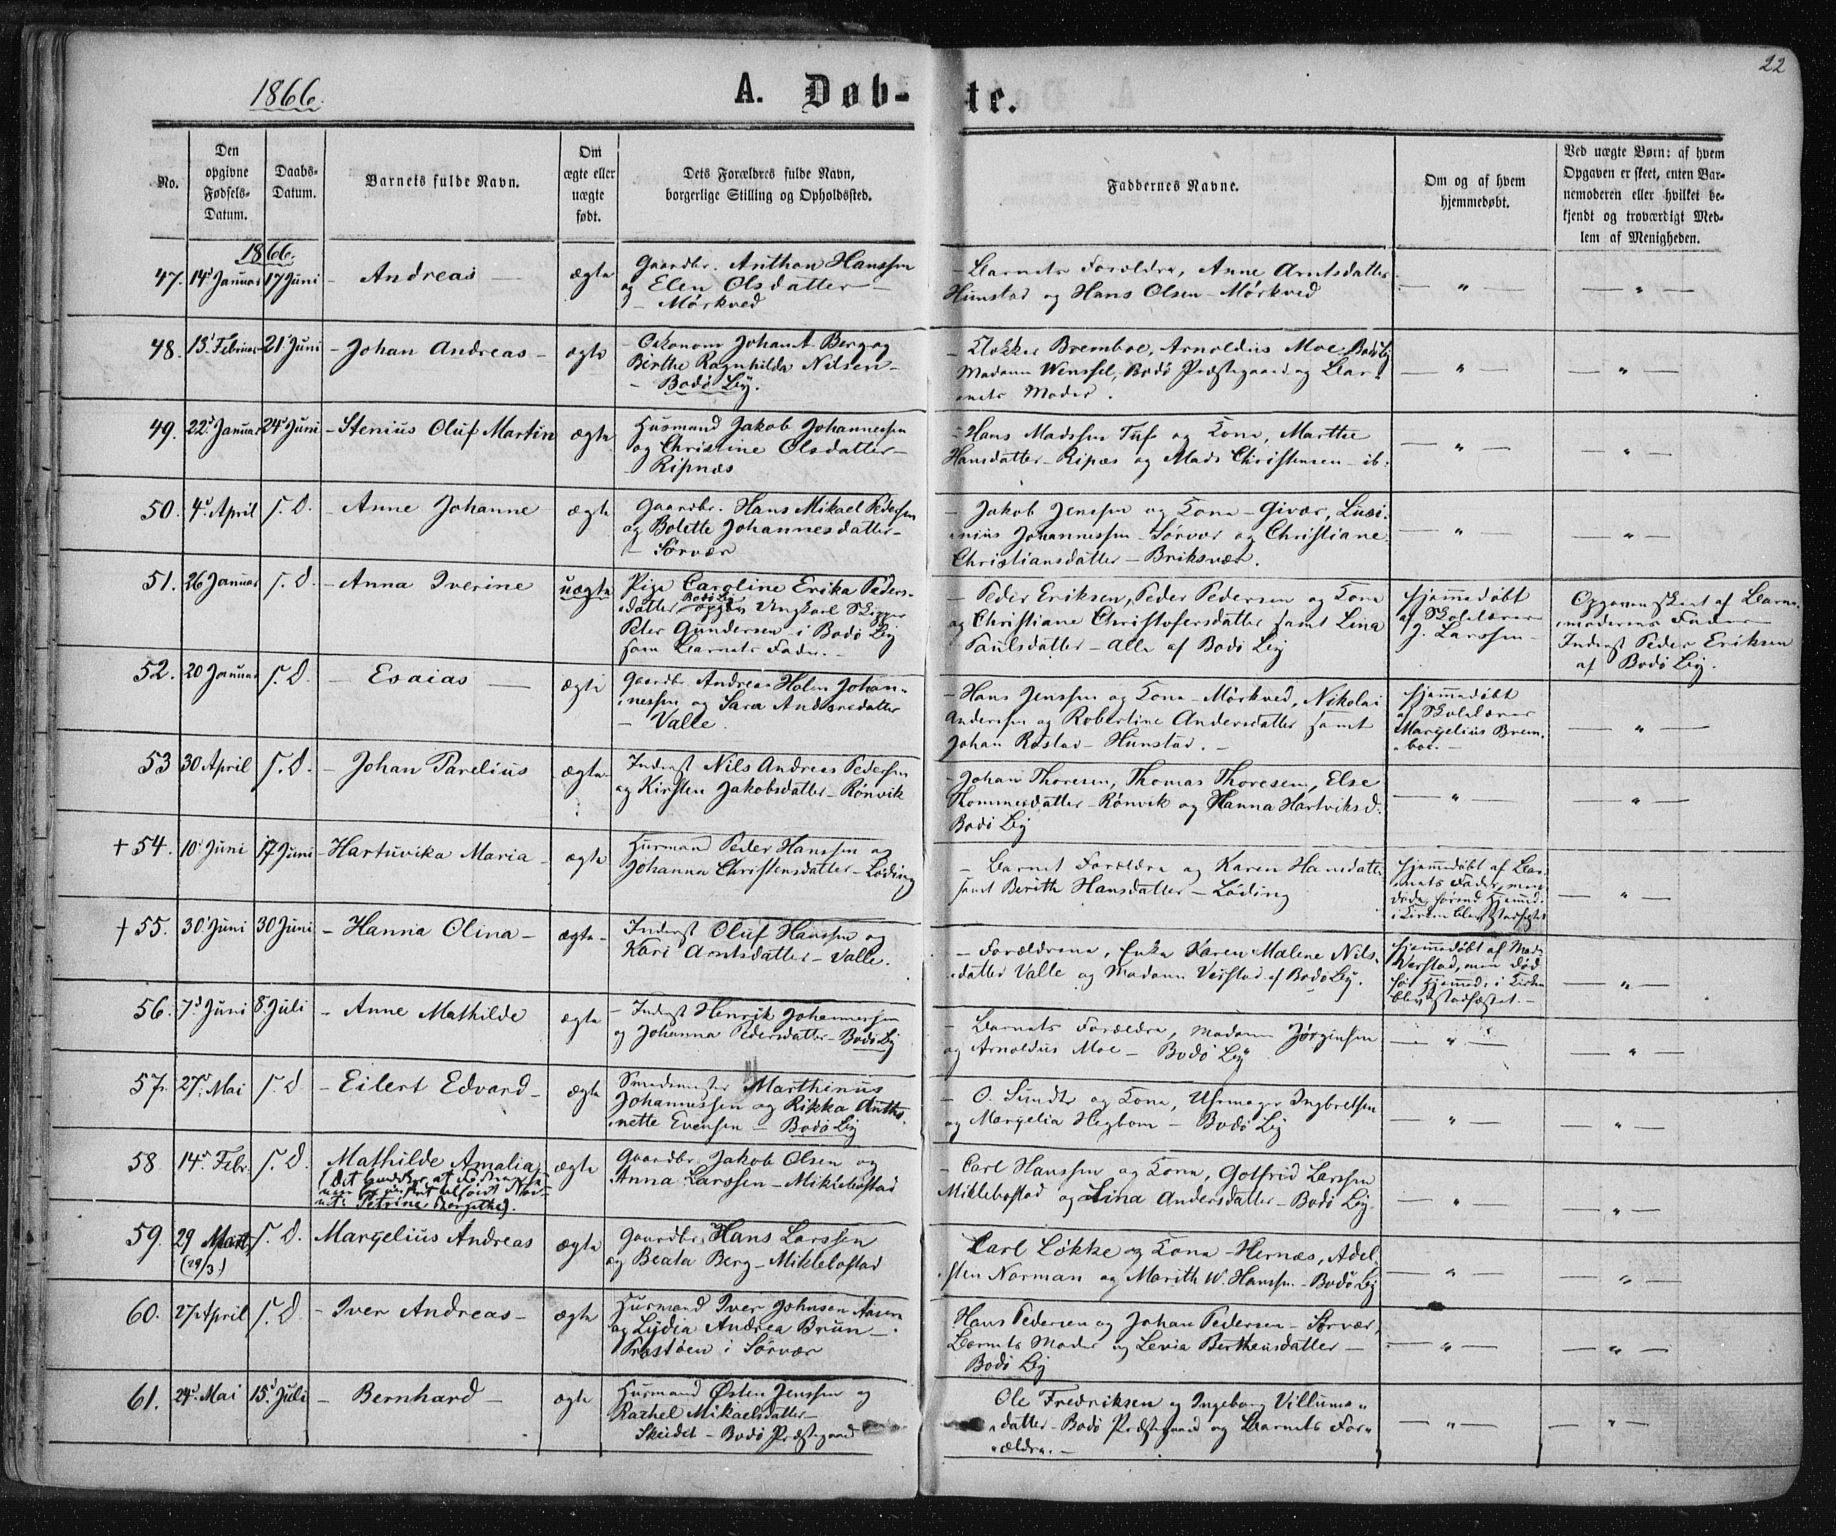 1866.
A. Døb-
te.
22
No.
Den
opgivne
Fødsels-
Datum.
Daabs-
Datum.
Barnets fulde Navn.
Om
ægte eller
uægte
født.
Dets Forældres fulde Navn,
borgerlige Stilling og Opholdssted.
Faddernes Navne.
Om og af hvem
hjemmedøbt.
Ved uægte Børn: af hvem
Opgaven er skeet, enten Bar-
nemoderen eller hvilket be-
kjendt og troværdigt Med-
lem af Menigheden.
1866.
47. 14 Januar 17 Juni - Andreas - ægte
Gaardbr. Anthon Hanssen
og Elen Olsdatter -
- Mörkved
- Barnets Forældre, Anne Arntsdatter
Hunstad og Hans Olsen - Mörkved
- " - - " -
48. 13 Februar 21 Juni - Johan Andreas - ægte
- Oekonom Johan A. Berg og
Birthe Ragnhilda Nilsen -
- Bodö By.
- Klokker Bremboe, Arnoldus Moe Bodö By
Madam Wenssel, Bodö Præstegaard og Bar-
nets Moder.
- " - - " -
49. 22 Januar 24 Juni - Stenius Oluf Martin ægte
Husmand Jakob Johannessen
og Christine Olsdatter -
- Ripnæs
- Hans Madssen Tuf og Kona, Marthe
Hansdatter - Ripæs og Mads Christensen - ib.
- " - - " -
50. 4 April S. D. - Anne Johanne ægte
Gaardbr. Hans Mikael Pedersen
og Bolette Johannesdatter -
- Sörvær
- Jakob Jenssen og Kona - Givær, Lusi-
nius Johannessen - Sörvær og Christiane
Christiansdatter - Briksvær.
- " - - " -
51. 26 Januar S. D. - Anna Iverine uægte
Pige Caroline Erika Peders-
datter Bodö By opgav Ungkarl Skipper
Peter Gundersen i Bodö By
som Barnets Fader. -
- Peder Eriksen, Peder Pedersen og Kona
og Christiane Christofersdatter samt Lina
Paulsdatter - alle af Bodö By
Hjemmedöbt
af Skolelærer
J. Larssen -
Opgaven skeet af Barne-
moderens Fader
Inderst Peder Eriksen
af Bodö By.
52. 20 Januar S. D. - Esaias - ægte
Gaardbr. Andreas Holm Johan-
nessen og Sara Andersdatter
- Valle.
- Hans Jenssen og Kona - Mörkved, Nikolai
Andersen og Robertine Andersdatter samt
Johan Röstad - Hunstad. -
Hjemmedöbt
af Skolelærer
Margelius Brem-
boe. -
- " -
53 30 April S. D. - Johan Parelius ægte
- Inderst Nils Andreas Pedersen
og Kirsten Jakobsdatter - Rönvik
- Johan Thoresen, Thomas Thoresen, Else
Hommesdatter - Rönvik og Hanna Hartviksd.
Bodö By
- " - - " -
+ 54. 10 Juni 17 Juni - Hartuvika Maria - ægte
Husmand Peder Hanssen og
Johanna Christensdatter - Löding
- Barnets Forældre og Karen Hansdatter
samt Berith Hansdatter - Löding
Hjemmedöbt af Bar-
nets Fader, men
döde förend Hjemmed.
i Kirken blev stadfæstet
- " -
+ 55. 30 Juni 30 Juni - Hanna Olina - ægte
- Inderst Oluf Hanssen og
Kari Arntsdatter - Valle.
- Forældrene, Enke Karen Malene Nils-
datter Valle og Madam Verstad af Bodö By.
Hjemmedöbt af Mad.
Verstad, men död
för Hjemmed. i Kirken
blev stadfæstet. -
- " -
56. 7 Juni 8 Juli - Anne Mathilde ægte
- Inderst Henrik Johannessen
og Johanna Pedersdatter - Bodö By
- Barnets Forældre, Madam Jörginsen
og Arnoldus Moe - Bodö By
- " - - " -
57. 27 Mai S. D - Eilert Edvard - ægte
Smedmester Marthinus
Johannessen og Rikka Antho-
nette Evensen - Bodö By
- O. Sundts og Kona, Uhrmager Ingbretsen
og Margelia Hegbom - Bodö By
- " - - " -
58 14 Febr. S. D. Mathilde Amalia ægte
Gaardbr. Jakob Olsen og
Anna Larssen - Miklebostad
- Carl Hanssen og Kona, Gotfrid Larssen
Miklebostad og Lina Andersdatter - Bodö By
- " - - " -
59. 29 Marts (29/3.) S. D. Margelius Andreas ægte
Gaardbr. Hans Larssen
og Beata Berg - Miklebostad
Carl Lökke og Kona - Hernæs, Adel-
sten Norman og Marith W. Hanssen - Bodö By
- " - - " -
60. 27 April S. D - Iver Andreas - ægte
Husmand Iver Johnsen Aasen
og Lydia Andrea Brun -
Præstöen i Sörvær
Hans Pedersen og Johan Pedersen - Sörvær,
Barnets Moder og Levia Berthensdatter -
Bodö By
- " - - " -
61. 24 Mai 15 Juli - Bernhard - ægte
Husmand Østen Jenssen og
Rachel Mikaelsdatter -
Skeidet - Bodö Præstegaard
Ole Fredriksen og Ingeborg Villums-
datter - Bodö Præstegaard og Barnets For-
ældre. -
- " - - " -